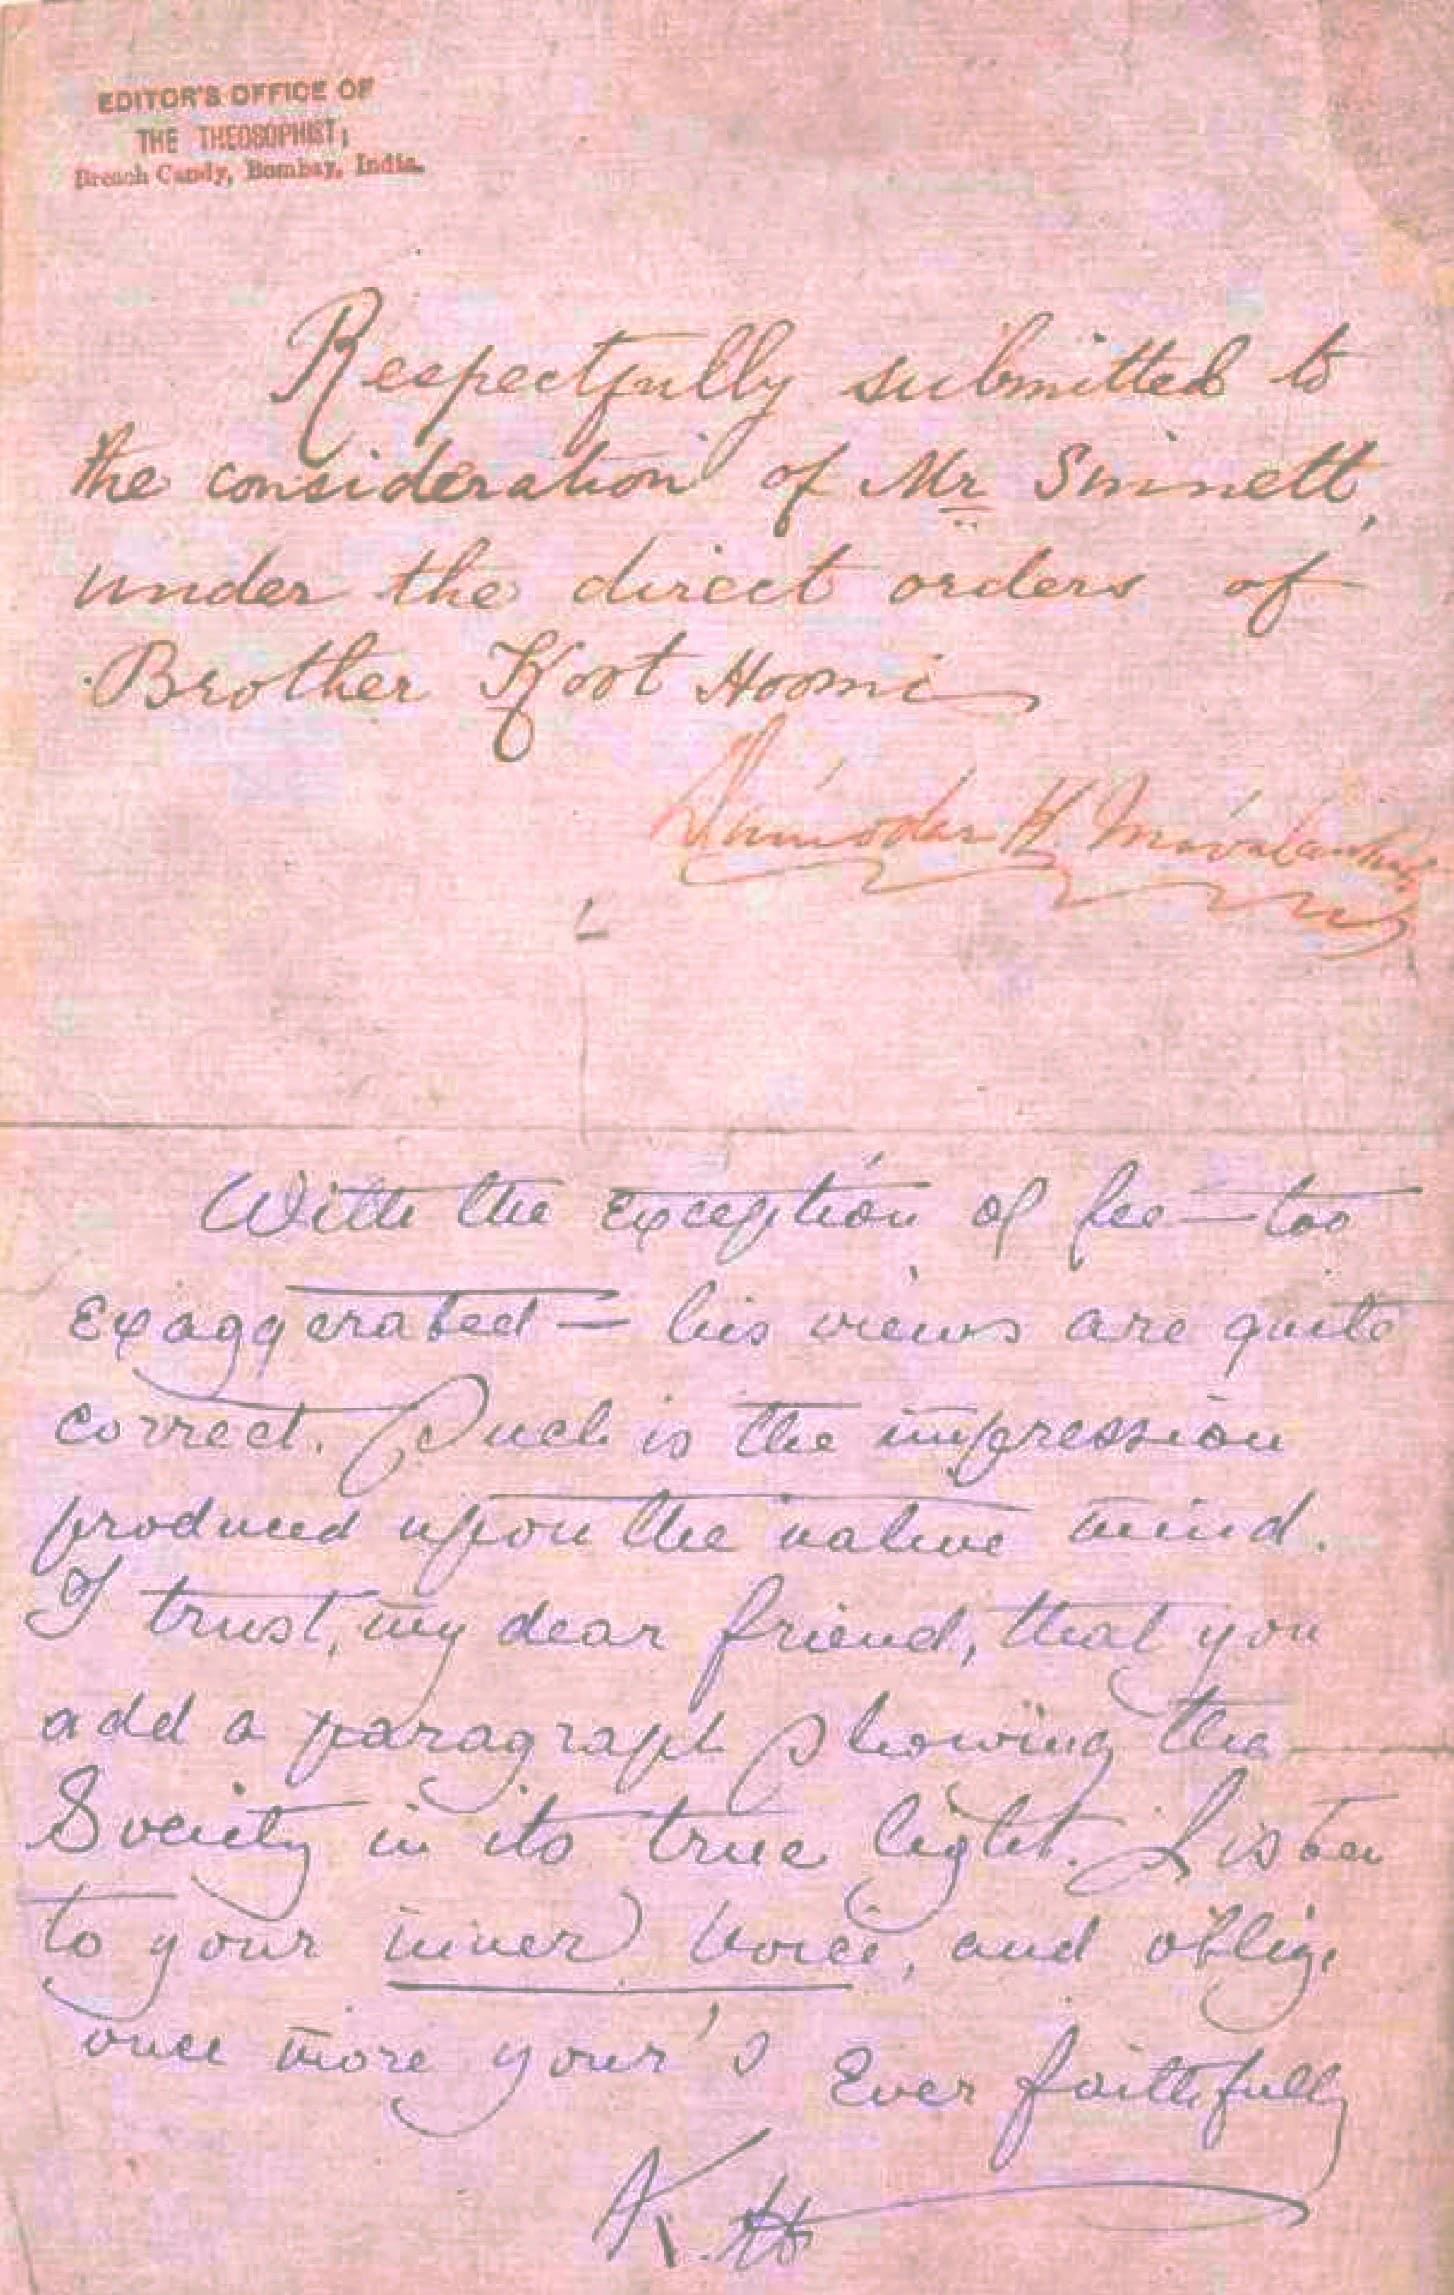 EDITOR'S OFFICE OF
THE THEOSOPHIST,
Breach Candy, Bombay, India.
Respectfully submitted to
the consideration of Mr Sinnett,
under the direct orders of
Brother Koot Hoomi
Damodar K. Mavalankar
With the exception of fee — too
exaggerated — his views are quite
correct. Such is the impression
produced upon the native mind.
I trust, my dear friend, that you
add a paragraph showing the
Society in its true light. Listen
to your inner voice, and oblige
once more your's Ever faithfully
K. H